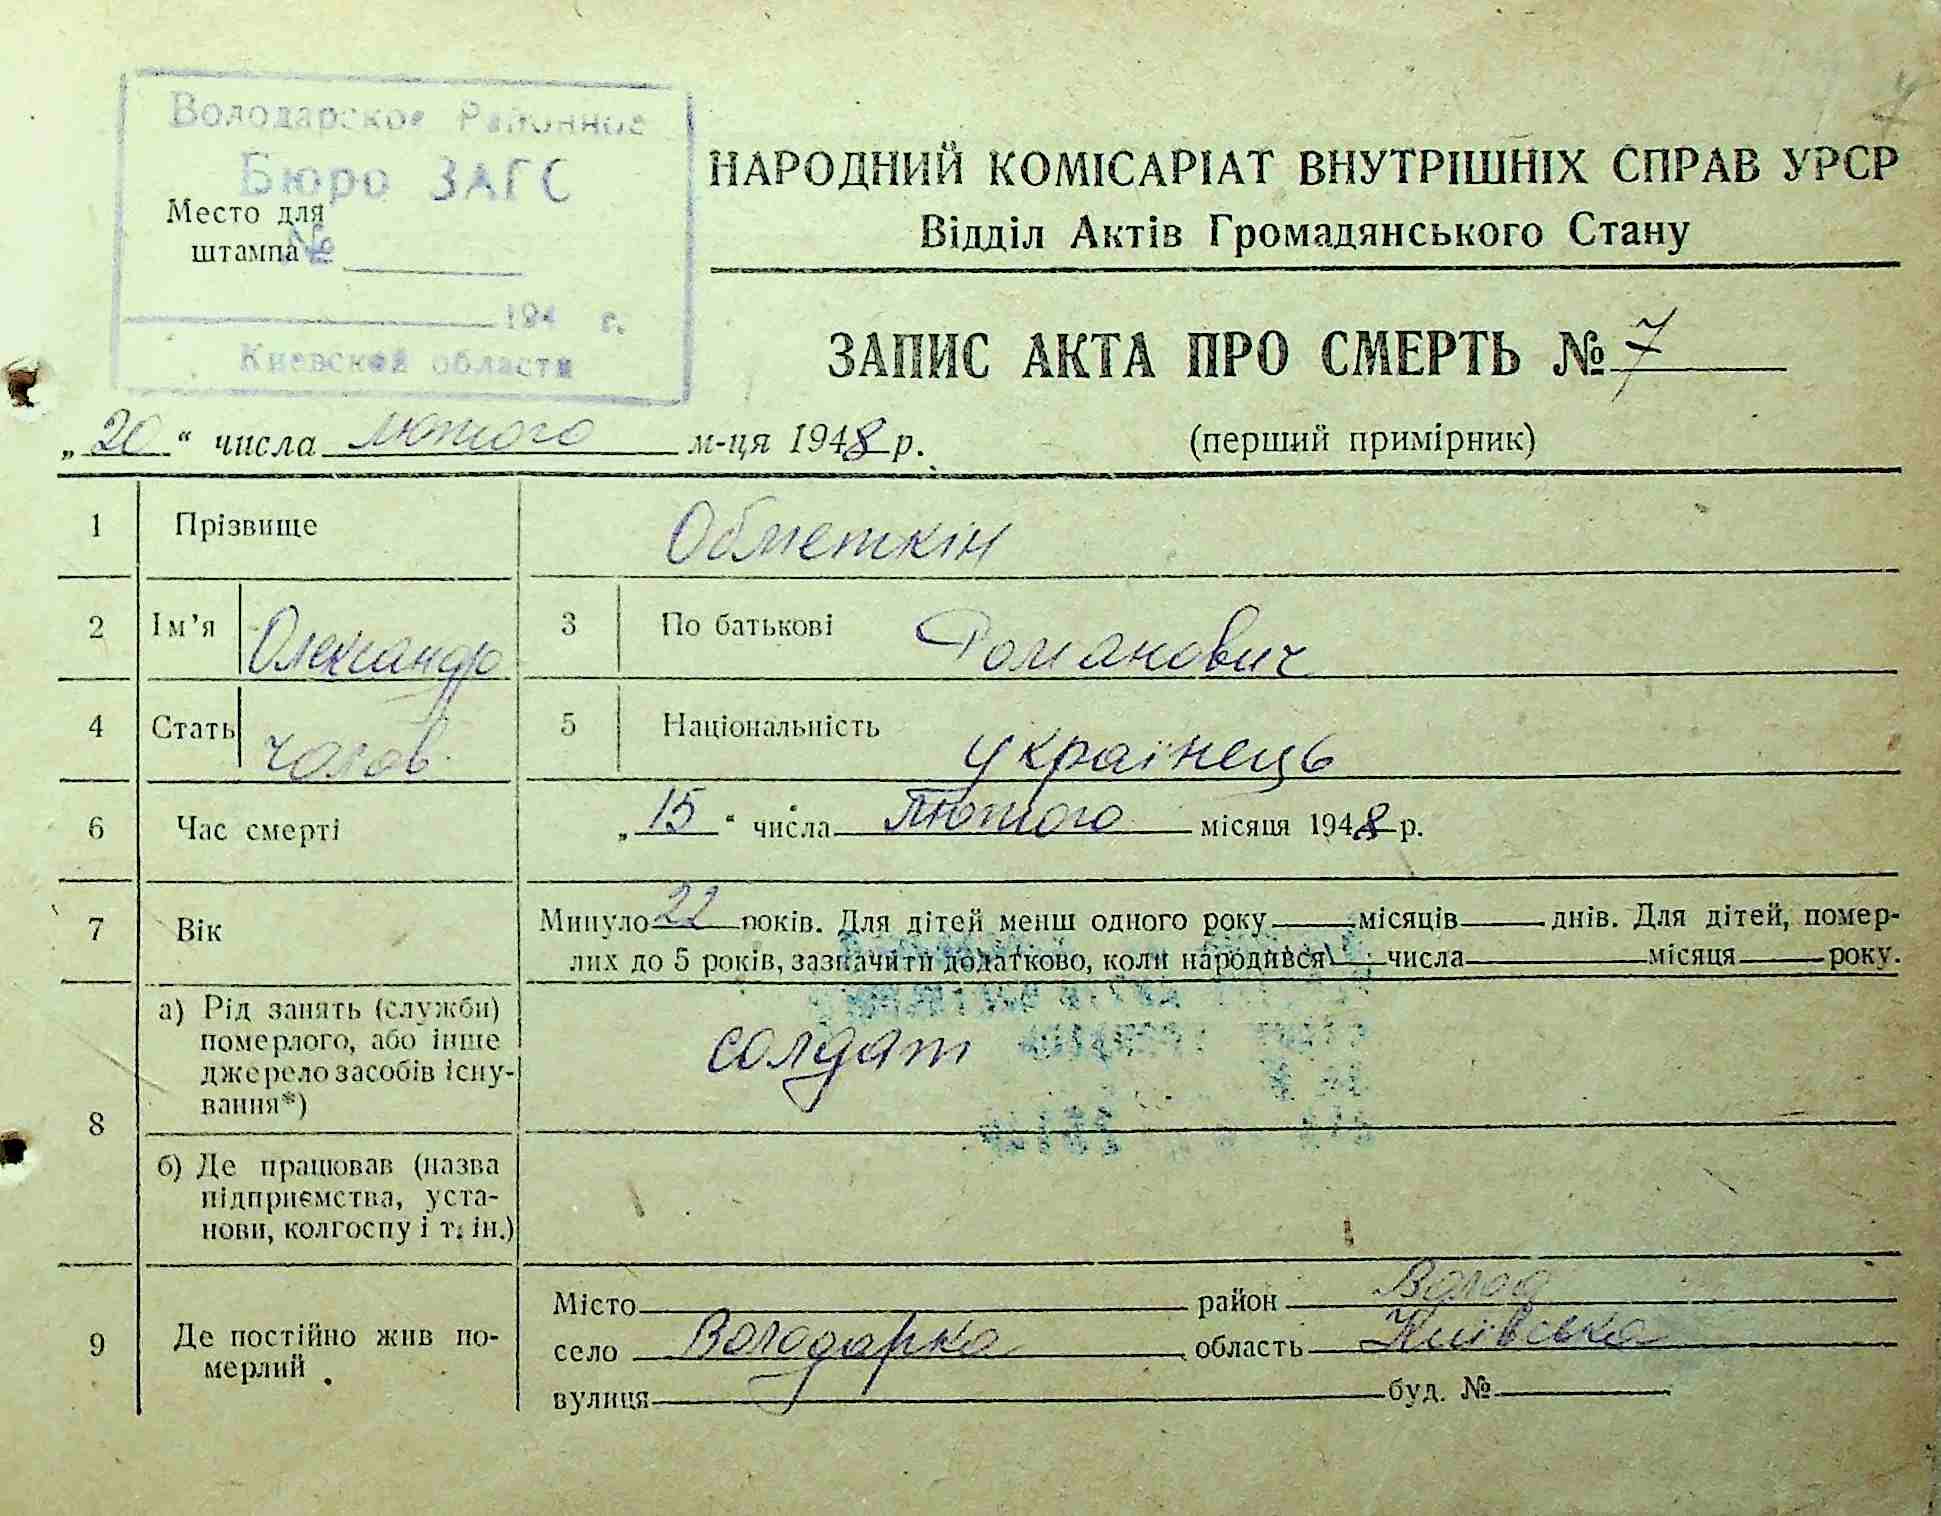 Володарское Районное
Бюро ЗАГС
Место для
штампа №
194 г.
Киевской области
НАРОДНИЙ КОМІСАРІАТ ВНУТРІШНІХ СПРАВ УРСР
Відділ Актів Громадянського Стану
ЗАПИС АКТА ПРО СМЕРТЬ № 7
„20“ числа лютого м-ця 1948 р.
(перший примірник)
1 Прізвище Обметкін
2 Ім’я Олександр 3 По батькові Романович
4 Стать чолов. 5 Національність українець
6 Час смерті „15“ числа лютого місяця 1948 р.
7 Вік Минуло 22 років. Для дітей менш одного року місяців днів. Для дітей, помер-
лих до 5 років, зазначити додатково, коли народився числа місяця року.
8
а) Рід занять (служби)
померлого, або інше
джерело засобів існу-
вання*)
солдат
б) Де працював (назва
підприємства, уста-
нови, колгоспу і т. ін.)
9 Де постійно жив по-
мерлий
Місто район Волод
село Володарка область Київська
вулиця буд. №